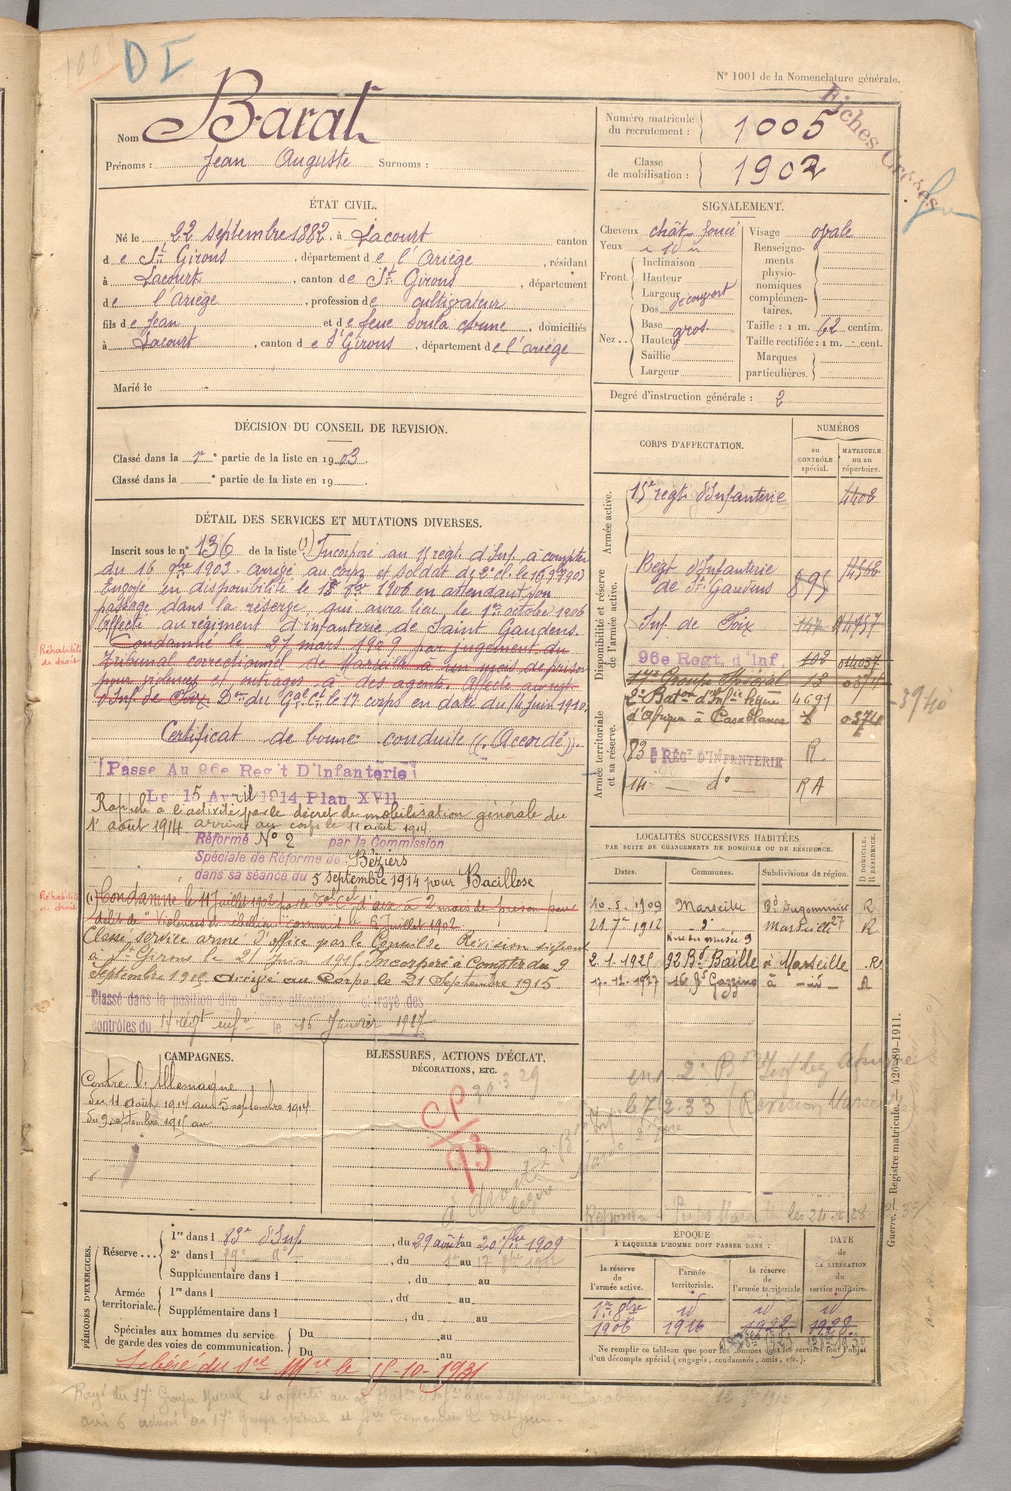 1005
D I
N° 1001 de la Nomenclature générale.
Fiches
Nom Barat
Prénoms : Jean Auguste Surnoms :
Numéro matricule du recrutement : 1005
Classe de mobilisation : 1902
ÉTAT CIVIL.
Né le 22 septembre 1882, à Lacourt canton
d e St Girons, département d e l'ariège, résidant
à Lacourt, canton de St Girons, département
de l'Ariège, profession de cultivateur
fils de Jean et de feue Soula Anne, domiciliés
à Lacourt, canton d e St Girons, département de l'ariège
Marié le
SIGNALEMENT.
Cheveux chât. foncé
Yeux
Front. Inclinaison
Hauteur
Largeur
Dos
découvert
Nez.. Base
Hauteur gros
Saillie
Largeur
Visage ovale
Renseignements physionomiques complémentaires.
Taille : 1 m. 62 centim.
Taille rectifiée : 1 m. - cent.
Marques particulières.
Degré d'instruction générale : 2
DÉCISION DU CONSEIL DE REVISION.
Classé dans la 1re partie de la liste en 1903.
Classé dans la e partie de la liste en 19
DÉTAIL DES SERVICES ET MUTATIONS DIVERSES.
Inscrit sous le n° 136 de la liste (1) Incorporé au 15 régt d'Inf. à compter
du 16 9bre 1903. arrivé au corps et soldat de 2e cl. le 16 9bre 1903
Envoyé en disponibilité le 18 1906 en attendant son
passage dans la réserve, qui aura lieu le 1er octobre 1906
Affecté au régiment d'infanterie de Saint Gaudens.
Condamné le 27 mars 1909 par jugement du
Tribunal correctionnel de Marseille à un mois de prison
pour violences et outrages à des agents. Affecté au régt
d'Inf. de Foix Don du Gal Ct le 17 corps en date du 14 Juin 1910.
Réhabilité de droit
Certificat de bonne conduite "Accordé".
Passe Au 96e Regt D'Infanterie
Le 15 Avril 1914 Plan XVII
Rappelé à l'activité par le décret de mobilisation générale du
1er août 1914 arrivé au corps le 11 août 1914.
Réformé N° 2 par la Commission
Spéciale de Réforme de Béziers
dans sa séance du 5 septembre 1914 pour Bacillose
Réhabilité de droit
(1) Condamné le 11 juillet 1902 par le à 2 mois de prison pour
délit de "Violences et rébellion" commis le 6 Juillet 1902
Classé service armé d'office par le Conseil de Révision siégeant
à St Girons le 21 Juin 1915. Incorporé à Compter du 9
Septembre 1915. Arrivé au Corps le 21 Septembre 1915
Classé dans la position dite "Sans affectation" et rayé des
contrôles du 14 régt infie le 15 Janvier 1927
CORPS D'AFFECTATION.
NUMÉROS
au CONTRÔLE spécial.
MATRICULE ou au répertoire.
Armée active.
15e régt d'Infanterie 4408
Disponibilité et réserve de l'armée active.
Regt d'Infanterie de St Gaudens 895
Inf. de Foix
96e Regt. d'Inf. 102 04037
17e Groupe Spécial 18
Armée territoriale et sa réserve.
2e Baton d'Infie légère 4691
d'Afrique à Casablanca
3740
83 e REGt D'INFANTERIE R.
14 — do RA
LOCALITÉS SUCCESSIVES HABITÉES
PAR SUITE DE CHANGEMENTS DE DOMICILE OU DE RÉSIDENCE.
Dates. Communes. Subdivisions de région. D DOMICILE, R RÉSIDENCE.
10. 5. 1909 Marseille Bd Dugommier R
21. 7bre 1912 do Marseille 27 R
Rue du musée 9
2. 1. 1925 92 Bd Baille à Marseille R
17. 12. 1927 16 Bd Gazzino à - id - R
CAMPAGNES.
Contre l'Allemagne
du 11 août 1914 au 5 septembre 1914
du 9 septembre 1915 au
BLESSURES, ACTIONS D'ÉCLAT,
DÉCORATIONS, ETC.
30 3 29
CP
93
PÉRIODES D'EXERCICES.
Réserve... 1re dans l 83e d'Inf, du 29 août au 20 7bre 1909
2e dans l
Supplémentaire dans l , du au
Armée territoriale. 1re dans l , du au
Supplémentaire dans l , du au
Spéciales aux hommes du service de garde des voies de communication. Du au
Du au
ÉPOQUE
À LAQUELLE L'HOMME DOIT PASSER DANS :
la réserve de l'armée active.
l'armée territoriale.
la réserve de l'armée territoriale
DATE de LA LIBÉRATION du service militaire.
1er 8bre 1906
id 1916
id 1922
id 1928
Ne remplir ce tableau que pour les hommes dont les services font l'objet
d'un décompte spécial (engagés, condamnés, omis, etc.).
Libéré du sce Mre le 15-10-1931
Rayé du 17e Groupe spécial et affecté au 2e Baton
Guerre. — Registre matricule. 426-89-1911.